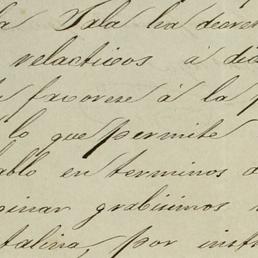 la Sala ha decre
relacticos á di
favorese á la p
lo que permite
ablo en terminos d
ginar grabisimos
talina, por inst